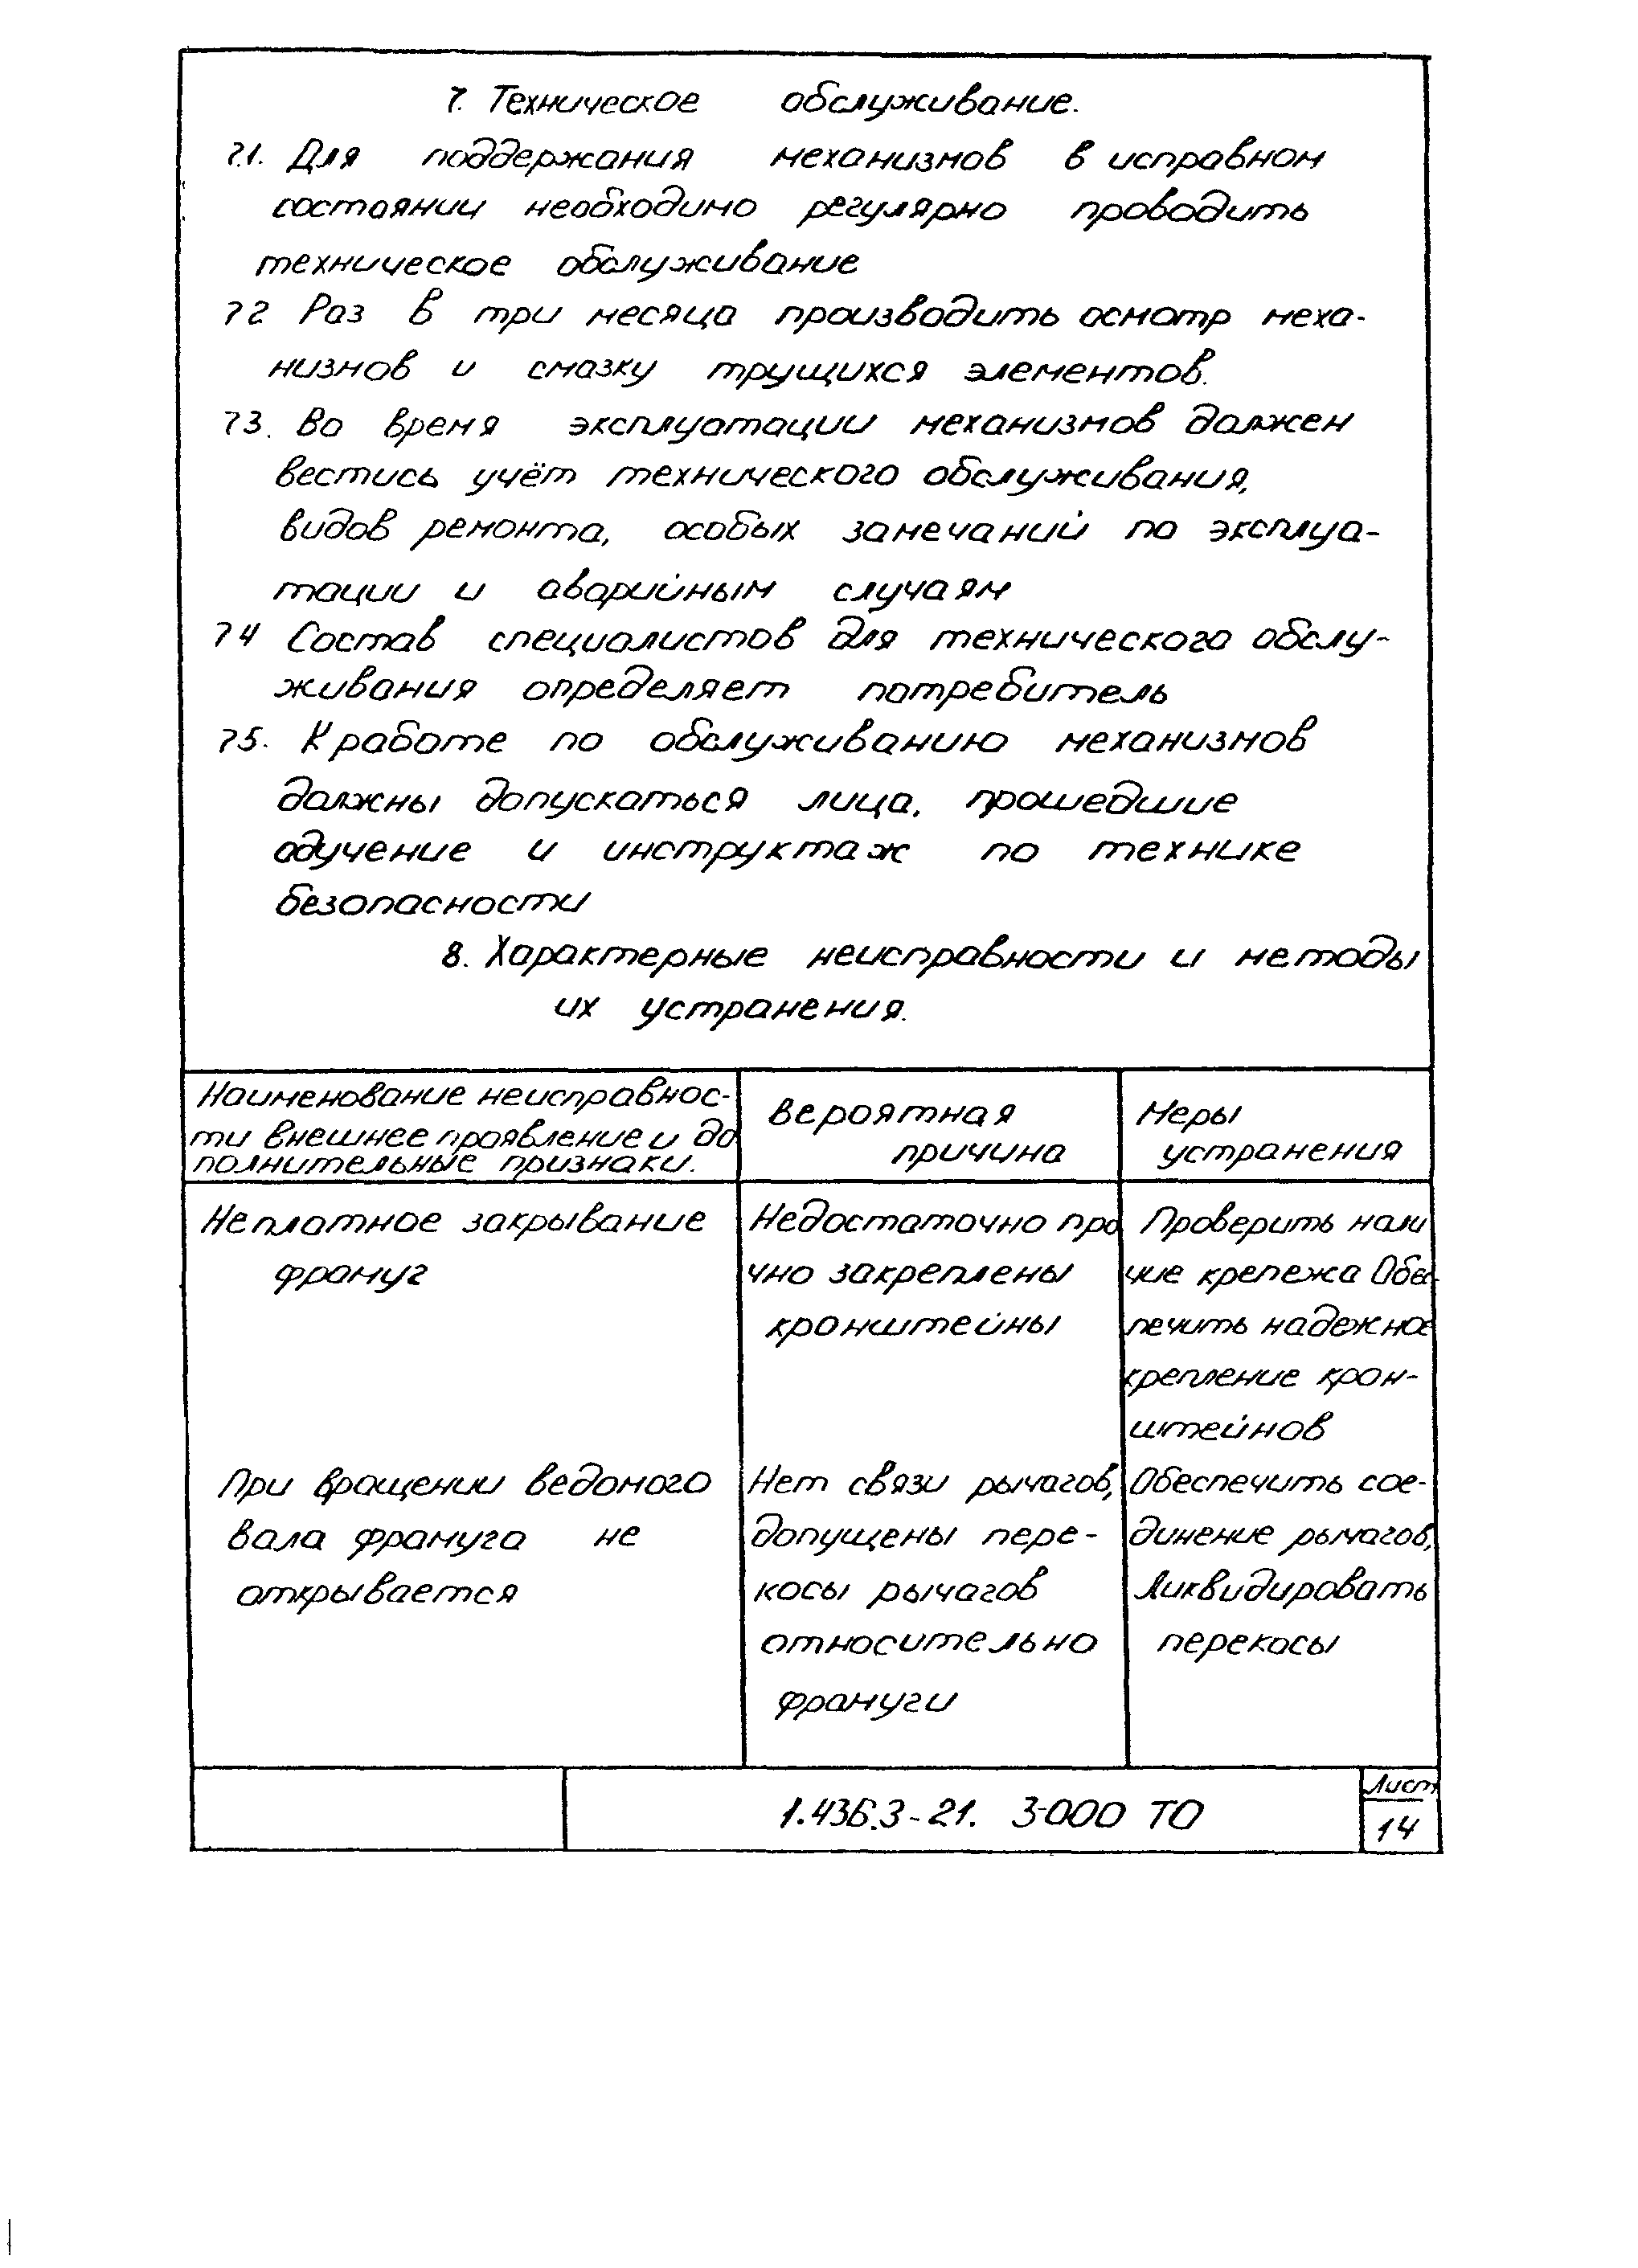 7. Техническое обслуживание.
7.1. Для поддержания механизмов в исправном
состоянии необходимо регулярно проводить
техническое обслуживание
7 2 Раз в три месяца производить осмотр меха-
низмов и смазку трущихся элементов.
7 3. Во время эксплуатации механизмов должен
вестись учёт технического обслуживания,
видов ремонта, особых замечаний по эксплуа-
тации и аварийным случаям
7 4 Состав специалистов для технического обслу-
живания определяет потребитель
7 5. К работе по обслуживанию механизмов
должны допускаться лица, прошедшие
обучение и инструктаж по технике
безопасности
8. Характерные неисправности и методы
их устранения.
Наименование неисправнос-
ти внешнее проявление и до
полнительные признаки.
Вероятная
причина
Меры
устранения
Неплотное закрывание
фрамуг
Недостаточно про
чно закреплены
кронштейны
Проверить нали
чие крепежа Обес-
печить надежное
крепление крон-
штейнов
При вращении ведомого
вала фрамуга не
открывается
Нет связи рычагов,
допущены пере-
косы рычагов
относительно
фрамуги
Обеспечить сое-
динение рычагов,
Ликвидировать
перекосы
1.436.3-21. 3-000 ТО
Лист
14